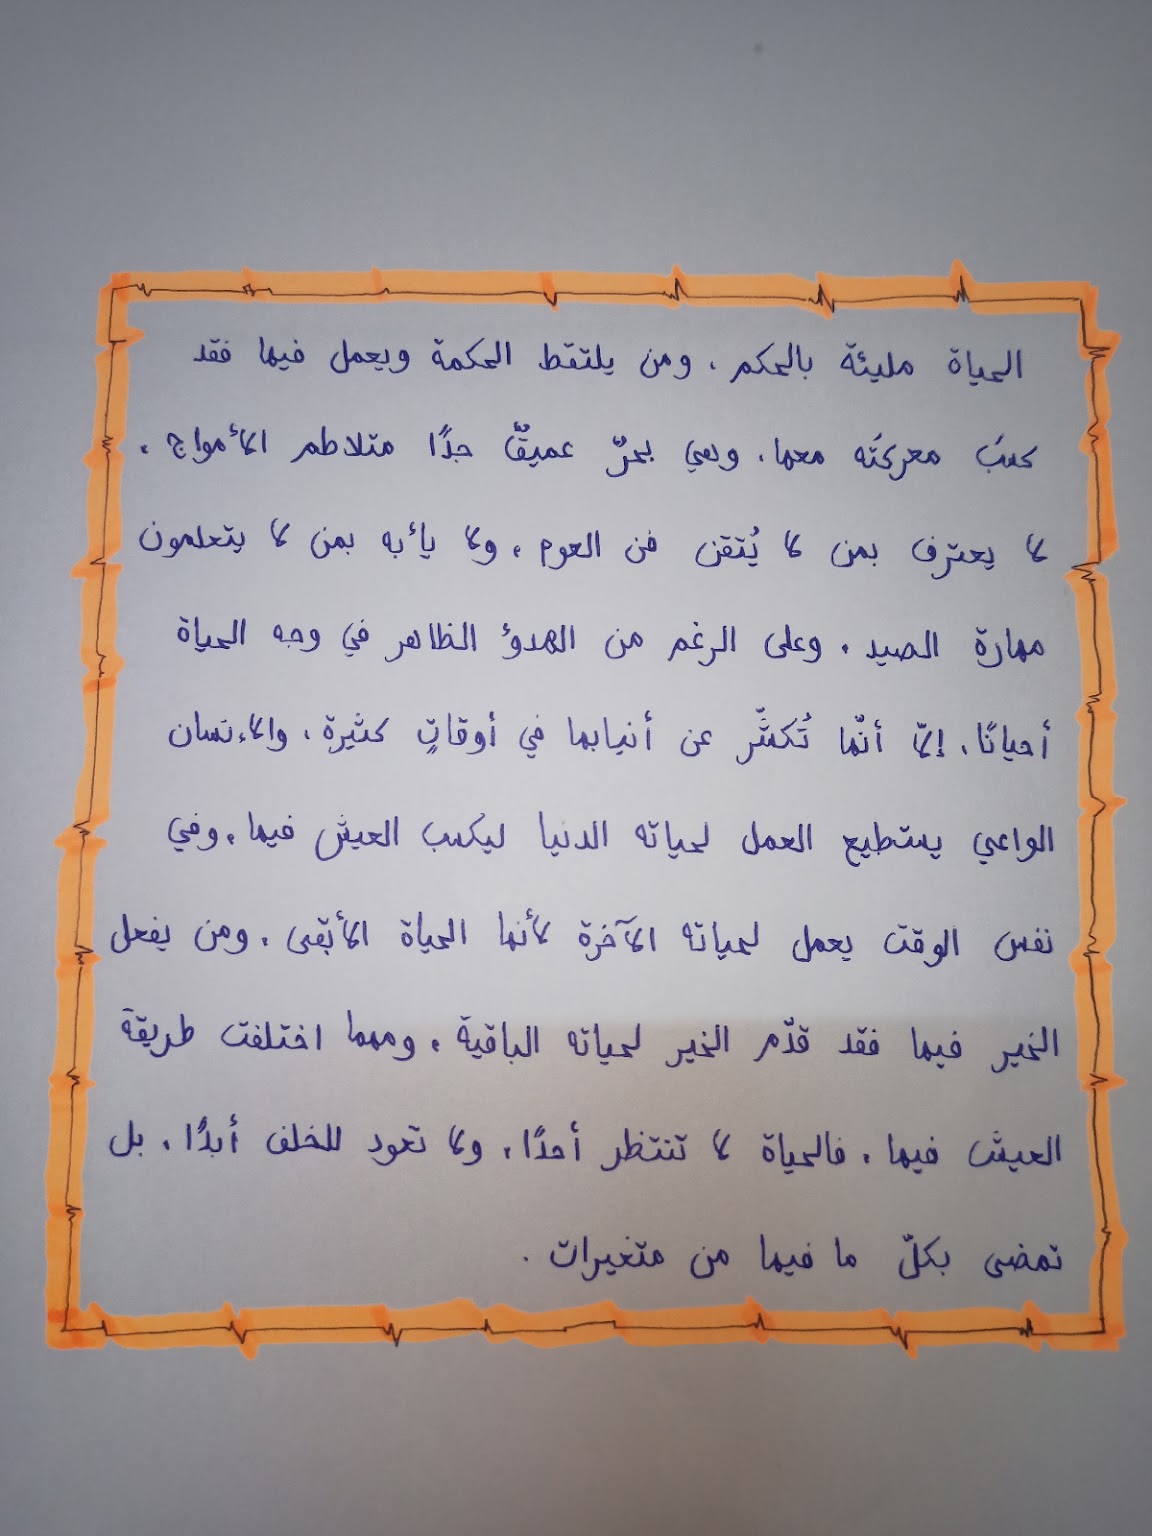 الحياة مليئة بالحكم ، ومن يلتقط الحكمة ويعمل فيها فقد
كسبَ معركتَه معها ، وهي بحرٌ عميقٌ جدًا متلاطم الأمواج ،
لا يعترف بمن لا يُتقن فن العوم ، ولا يأبه بمن لا يتعلمون
مهارة الصيد ، وعلى الرغم من الهدوؤ الظاهر في وجه الحياة
أحيانًا ، إلّا أنّها تُكشّر عن أنيابها في أوقاتٍ كثيرة ، والإنسان
الواعي يستطيع العمل لحياته الدنيا ليكسب العيش فيها ، وفي
نفس الوقت يعمل لحياته الآخرة لأنها الحياة الأبقى ، ومن يفعل
الخير فيها فقد قدّم الخير لحياته الباقية ، ومهما اختلفت طريقة
العيش فيها ، فالحياة لا تنتظر أحدًا ، ولا تعود للخلف أبدًا ، بل
تمضي بكلّ ما فيها من متغيرات .